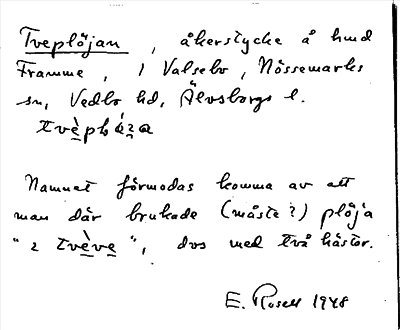 Tveplöjan, åkerstycke å hmd
Framme, i Valsebo, Nössemarks
sn, Vedbo hd, Älvsborgs l.
Namnet förmodas komma av att
man där brukade (måste?) plöja
"i tvève", dvs med två hästar.
E. Rosell 1948